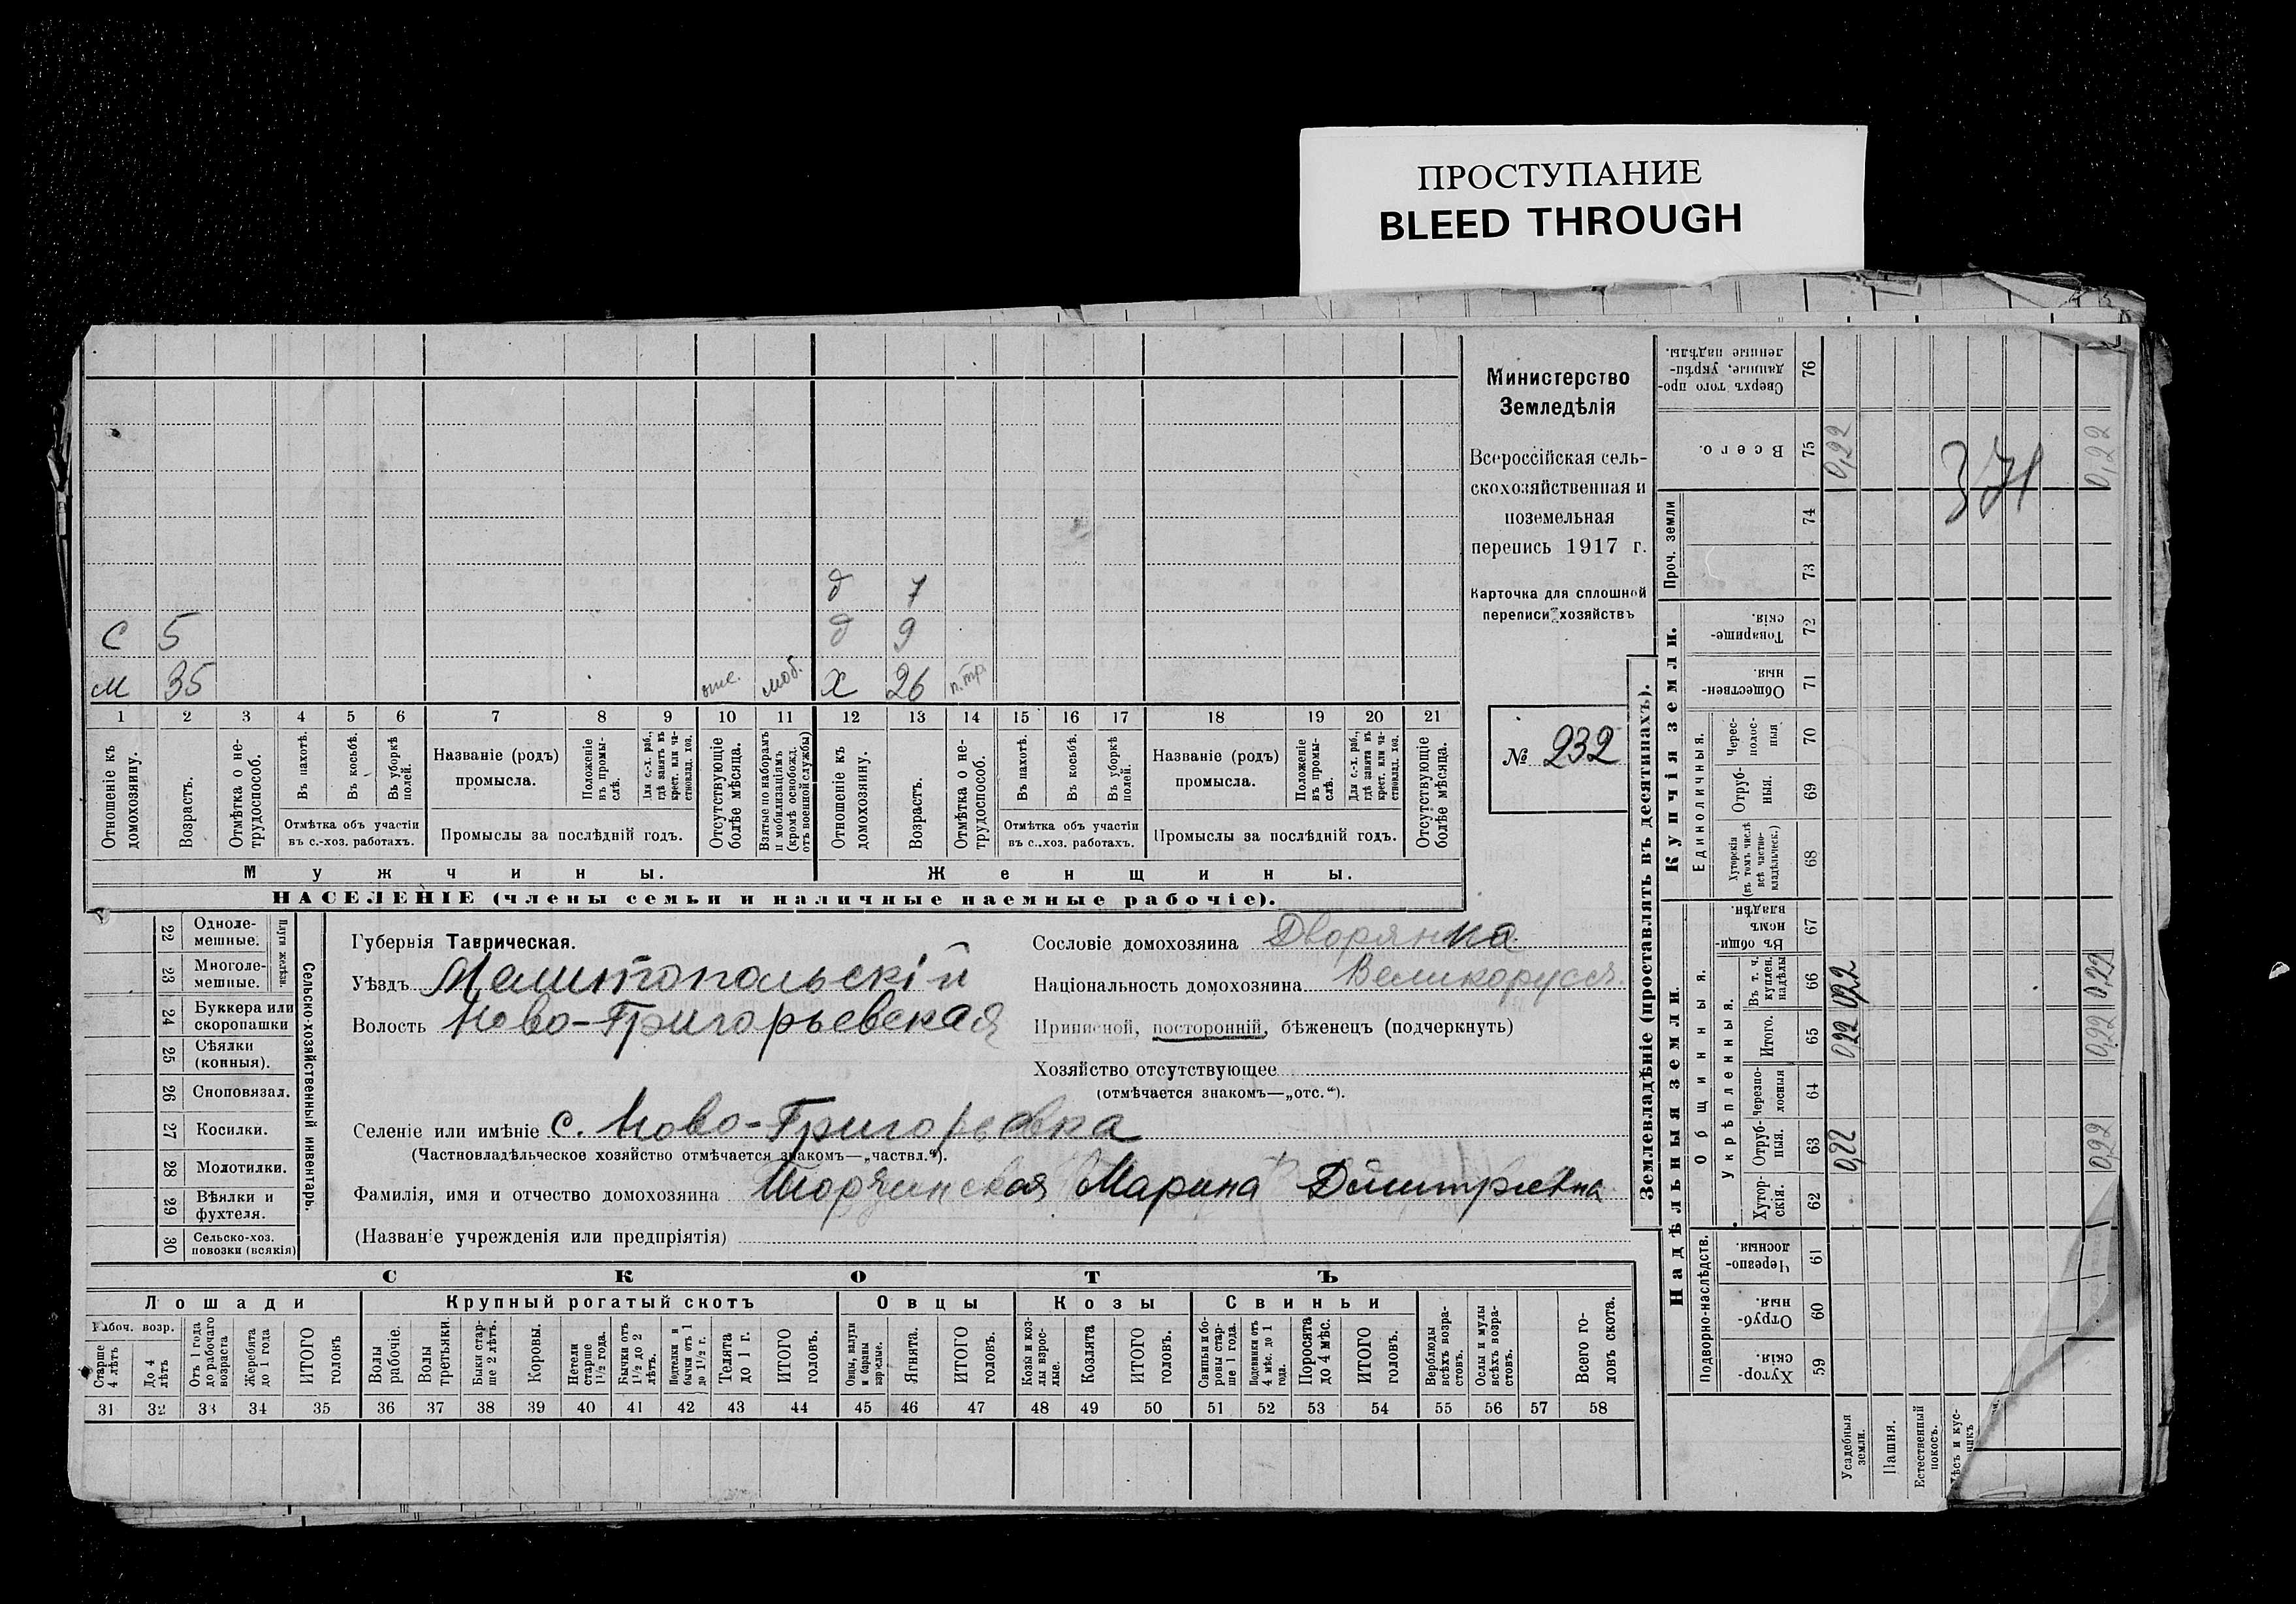 ПРОСТУПАНИЕ
BLEED THROUGH
Министерство
Земледѣлія
Всероссійская сель-
скохозяйственная и
поземельная
перепись 1917 г.
Карточка для сплошной
переписи хозяйствъ
№ 232
д 7
С 5 д 9
м 35 отс. моб. Х 26 п.тр
1 2 3 4 5 6 7 8 9 10 11 12 13 14 15 16 17 18 19 20 21
Отношеніе къ домохозяину.
Возрастъ.
Отмѣтка о не-трудоспособ.
Въ пахотѣ.
Въ косьбѣ.
Въ уборкѣ полей.
Отмѣтка объ участіи
въ с.-хоз. работахъ.
Названіе (родъ)
промысла.
Положеніе въ промы-слѣ.
Для с.-х. раб., гдѣ занятъ въ крест. или ча-стновлад. хоз.
Промыслы за послѣдній годъ.
Отсутствующіе болѣе мѣсяца.
Взятые по наборамъ и мобилизаціямъ (кромѣ освобожд. отъ военной службы)
Отношеніе къ домохозяину.
Возрастъ.
Отмѣтка о не-трудоспособ.
Въ пахотѣ.
Въ косьбѣ.
Въ уборкѣ полей.
Отмѣтка объ участіи
въ с..хоз. работахъ.
Названіе (родъ)
промысла.
Положеніе въ промы-слѣ.
Для с.-х. раб., гдѣ занятъ въ крест. или ча-стновлад. хоз.
Промыслы за послѣдній годъ.
Отсутствующіе болѣе мѣсяца.
Мужчины. Женщины.
НАСЕЛЕНІЕ (члены семьи и наличные наемные рабочіе).
Сельско-хозяйственный инвентарь.
Плуги желѣзн.
22 Одноле-мешные.
23 Многоле-мешные.
24 Буккера или скоропашки
25 Сѣялки (конныя).
26 Сноповязал.
27 Косилки.
28 Молотилки.
29 Вѣялки и фухтеля.
30 Сельско-хоз. повозки (всякія)
Губернія Таврическая.
Уѣздъ Мелитопольскій
Волость Ново-Григорьевская
Селеніе или имѣніе с. Ново-Григорьевка
(Частновладѣльческое хозяйство отмѣчается знакомъ—„частвл.“).
Фамилія, имя и отчество домохозяина Марина Дмитріевна
(Названіе учрежденія или предпріятія)
Сословіе домохозяина Дворянка
Національность домохозяина Великорусс.
Приписной, посторонній, бѣженецъ (подчеркнуть)
Хозяйство отсутствующее
(отмѣчается знакомъ—„отс.“).
СКОТЪ
Лошади Крупный рогатый скотъ Овцы Козы Свиньи
Рабоч. возр.
Старше 4 лѣтъ
До 4 лѣтъ
Отъ 1 года до рабочаго возраста
Жеребята до 1 года
ИТОГО головъ
Волы рабочіе.
Волы третьяки.
Быки стар-ше 2 лѣтъ.
Коровы.
Нетели старше 1½ года.
Бычки отъ 1½ до 2 лѣтъ.
Подтелки и бычки отъ 1 до 1½ г.
Телята до 1 г.
ИТОГО головъ.
Овцы, валухи и бараны взрослые.
Ягнята.
ИТОГО головъ.
Козы и коз-лы взрос-лые.
Козлята
ИТОГО головъ.
Свиньи и бо-ровы стар-ше 1 года.
Подсвинки отъ 4 мѣс. до 1 года.
Поросята до 4 мѣс.
ИТОГО головъ.
Верблюды всѣхъ возра-стовъ.
Ослы и мулы всѣхъ возра-стовъ.
Всего го-ловъ скота.
31 32 33 34 35 36 37 38 39 40 41 42 43 44 45 46 47 48 49 50 51 52 53 54 55 56 57 58
Землевладѣніе (проставлять въ десятинахъ).
Надѣльныя земли. Купчія земли. Проч. земли
Подворно-наслѣдств.
Общинныя.
Укрѣпленныя.
Единоличныя.
Хутор-скія. 59
Отруб-ныя. 60
Черезпо-лосныя. 61
Хутор-скія. 62
Отруб-ныя. 63
Черезпо-лосныя 64
Итого. 65
Въ т. ч. куплен. надѣлы 66
Въ общин-номъ владѣн. 67
Хуторскія (въ томъ числѣ всѣ частно-владѣльческ.) 68
Отруб-ныя. 69
Черес-полос-ныя 70
Обществен-ныя 71
Товарище-скія. 72
73
74
Всего. 75
Сверхъ того про-данные, укрѣп-ленные надѣлы. 76
Усадебныя земли. 0,22 0,22 0,22 0,22
Пашня.
Естественный покосъ.
371
0,22 0,22 0,22 0,22